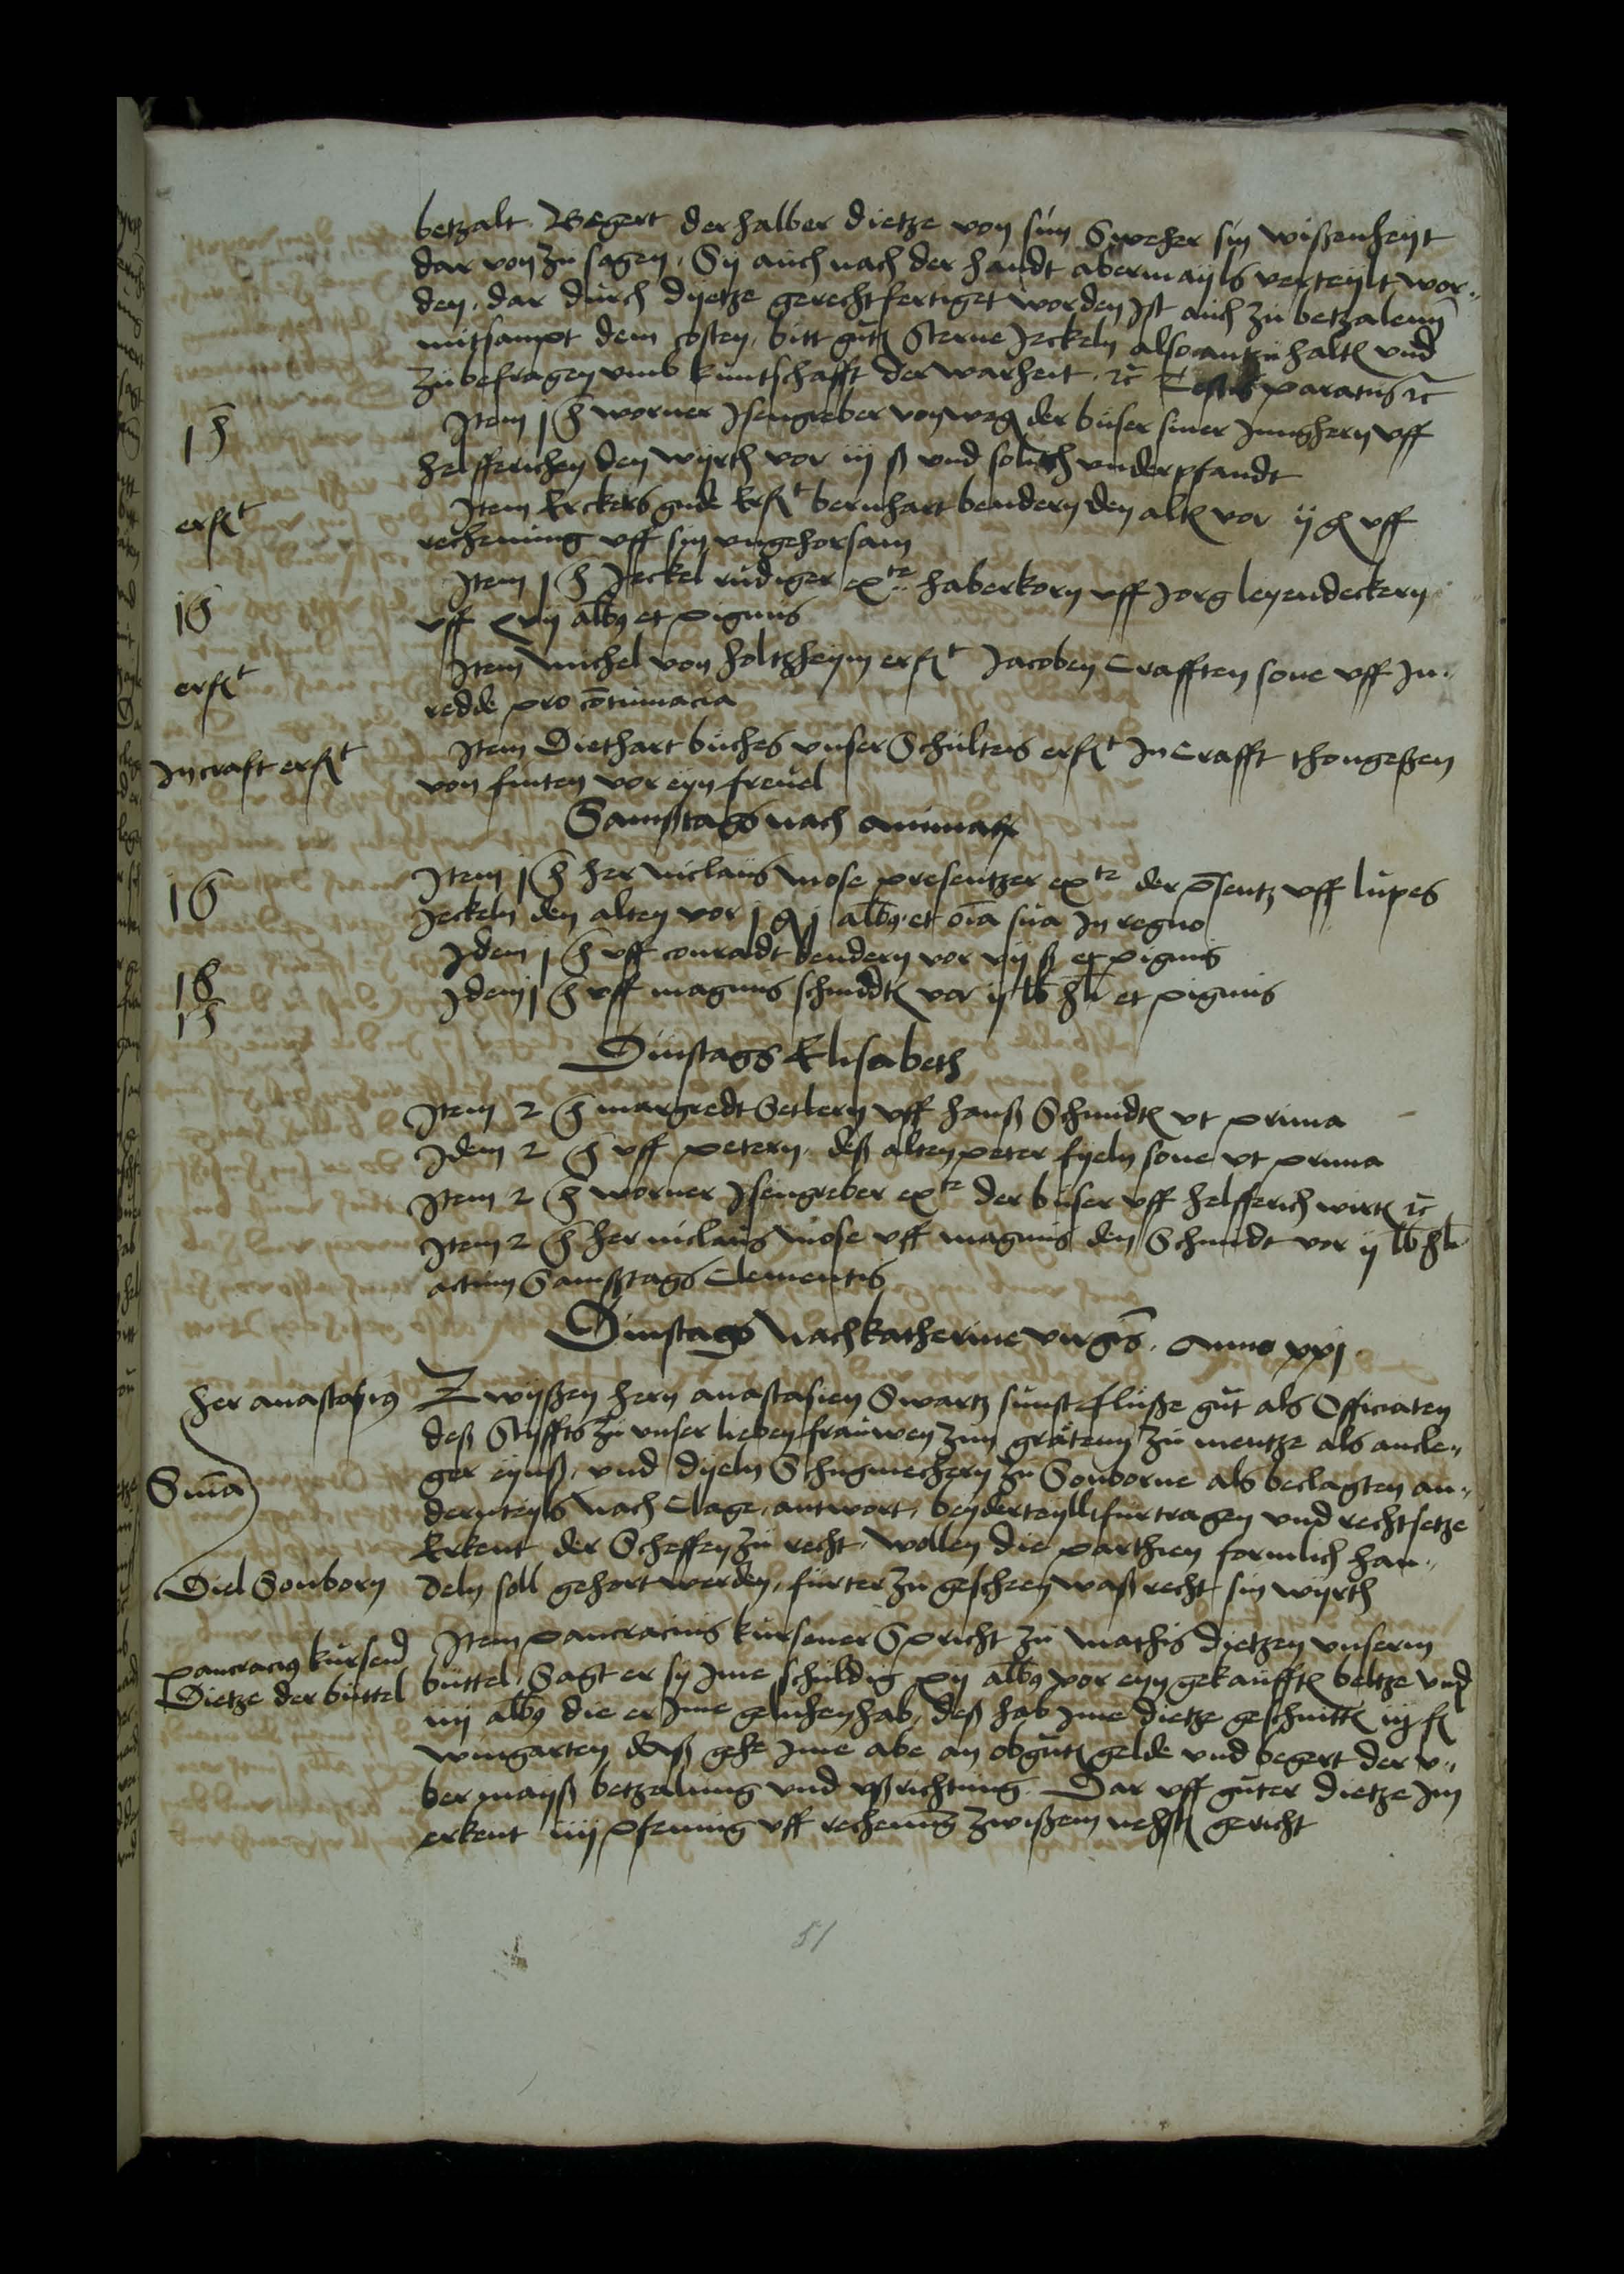 betzalt. Begert derhalber dietze von sim Sweher sin wißenheyt
dar von zu sagen. Sy auch nach der handt abermayls verteylt wor„
den, dar durch dyetze gerechtfertiget worden Ist auch zu betzalenn
mitsampt dem costen, bitt Sterne Jeckeln also antzuhalten und
zu befragen umb kuntschafft der warheit. ꝛc paratus ꝛc
1 h
Item 1 h worner Isengreber von weg der buser siner Junghern uff
helfferichen den wyrth vor iij ß und underpfandt
erk t
Item Erckers gude erk t bernhart bendern den alten vor ij g uff
rechenung uff sin ungehorsam
1 h
Item 1 h Jeckel rudiger ex te haberkorn uff Jorg leyendeckern
uff xvij albus et pignus
erk t
Item michel von holtzheym erk t Jacoben Crafften sone uff In„
redde pro contumacia
In craft erk t
Item Diethart buches unser Schulteis erk t In Crafft thongeßen
von finten vor eyn frevel
Samßtags nach animarum
1 h
Item 1 h her niclaus mose presentzer ex te der presentz uff lupes
Jeckeln den alten vor 1 g j albus et omnia sua In regno
1 h
Idem 1 h uff conradt bendern vor vij ß et pignus
1 h
Idem 1 h uff magnus schmidt vor ij lb hlr et pignus
Dinstags Elisabeth
Item 2 h margredt Setlern uff hanß Schmidten ut prima
Idem 2 h uff petern, deß alten peter fyeln sone ut prima
Item 2 h worner Isengreber ex te der buser uff helfferich wirt ꝛc
Item 2 h her niclaus mose uff magnus den Schmidt vor ij lb hlr
actum Samßtags Clementis
Dinstags Nach katherine virginis. Anno xxj
her anastasius
Zwyßen hern anastasien Swartz sunst flußegut als Officiaten
deß Styffts zu unser lieben frauwen zun gräten zu mentze als ancle„
Summa
ger eynß, und dyeln Schumechern zu Sonborne als beclagten an„
derntheyls Nach Clage, antwort, beyderteyll furtragen und rechtsetze
Erkent der Scheffen zu recht, wollen die parthien formlich han„
Diel Sonborn
deln soll gehort werden, furter zu gescheen waß recht sin wyrth
pancracius kursener
Item pancracius kursener Spricht zu mathis dietzen unserm
Dietze der buttel
buttel, Sagt er sy Ime schuldig xij albus vor eyn gekaufften beltze und
iiij albus die er Ime geluhen hab, deß hab Ime dietze geschnitten iij f
wingarten deß gehe Ime abe an obgemelten gelde und begert der u„
bermayß betzalung und ußrichtung. Dar uff guter dietze Im
erkent iiij pfennig uff rechenung zwißem nehsten gericht
51